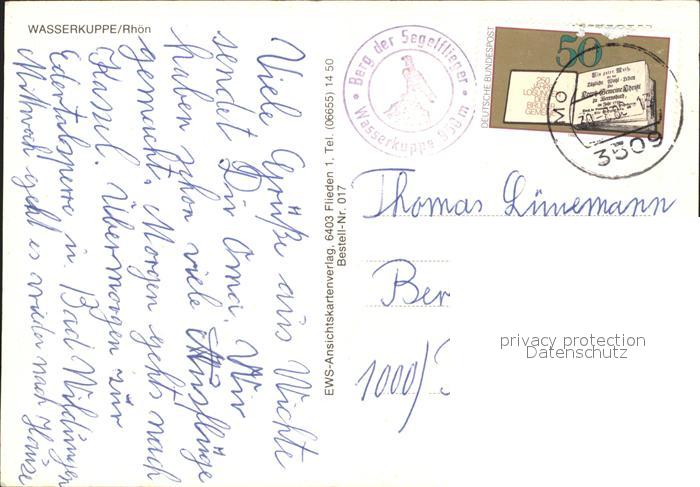 WASSERKUPPE/Rhön
Viele Grüße aus Wichte
sendet Dir Oma. Wir
haben schon viele Ausflüge
gemacht. Morgen gehts nach
Kassel. Übermorgen zur
Edertalsperre u. Bad Wildungen
Mittwoch geht es wieder nach Hause
EWS-Ansichtskartenverlag, 6403 Flieden 1, Tel. (06655) 14 50
Bestell-Nr. 017
Berg der Segelflieger
Wasserkuppe 950 m
DEUTSCHE BUNDESPOST
50
250
JAHRE
LOSUNGEN
DER
BRÜDER-
GEMEINE
MO
3509
Thomas Lünemann
Ber
1000/
privacy protection
Datenschutz